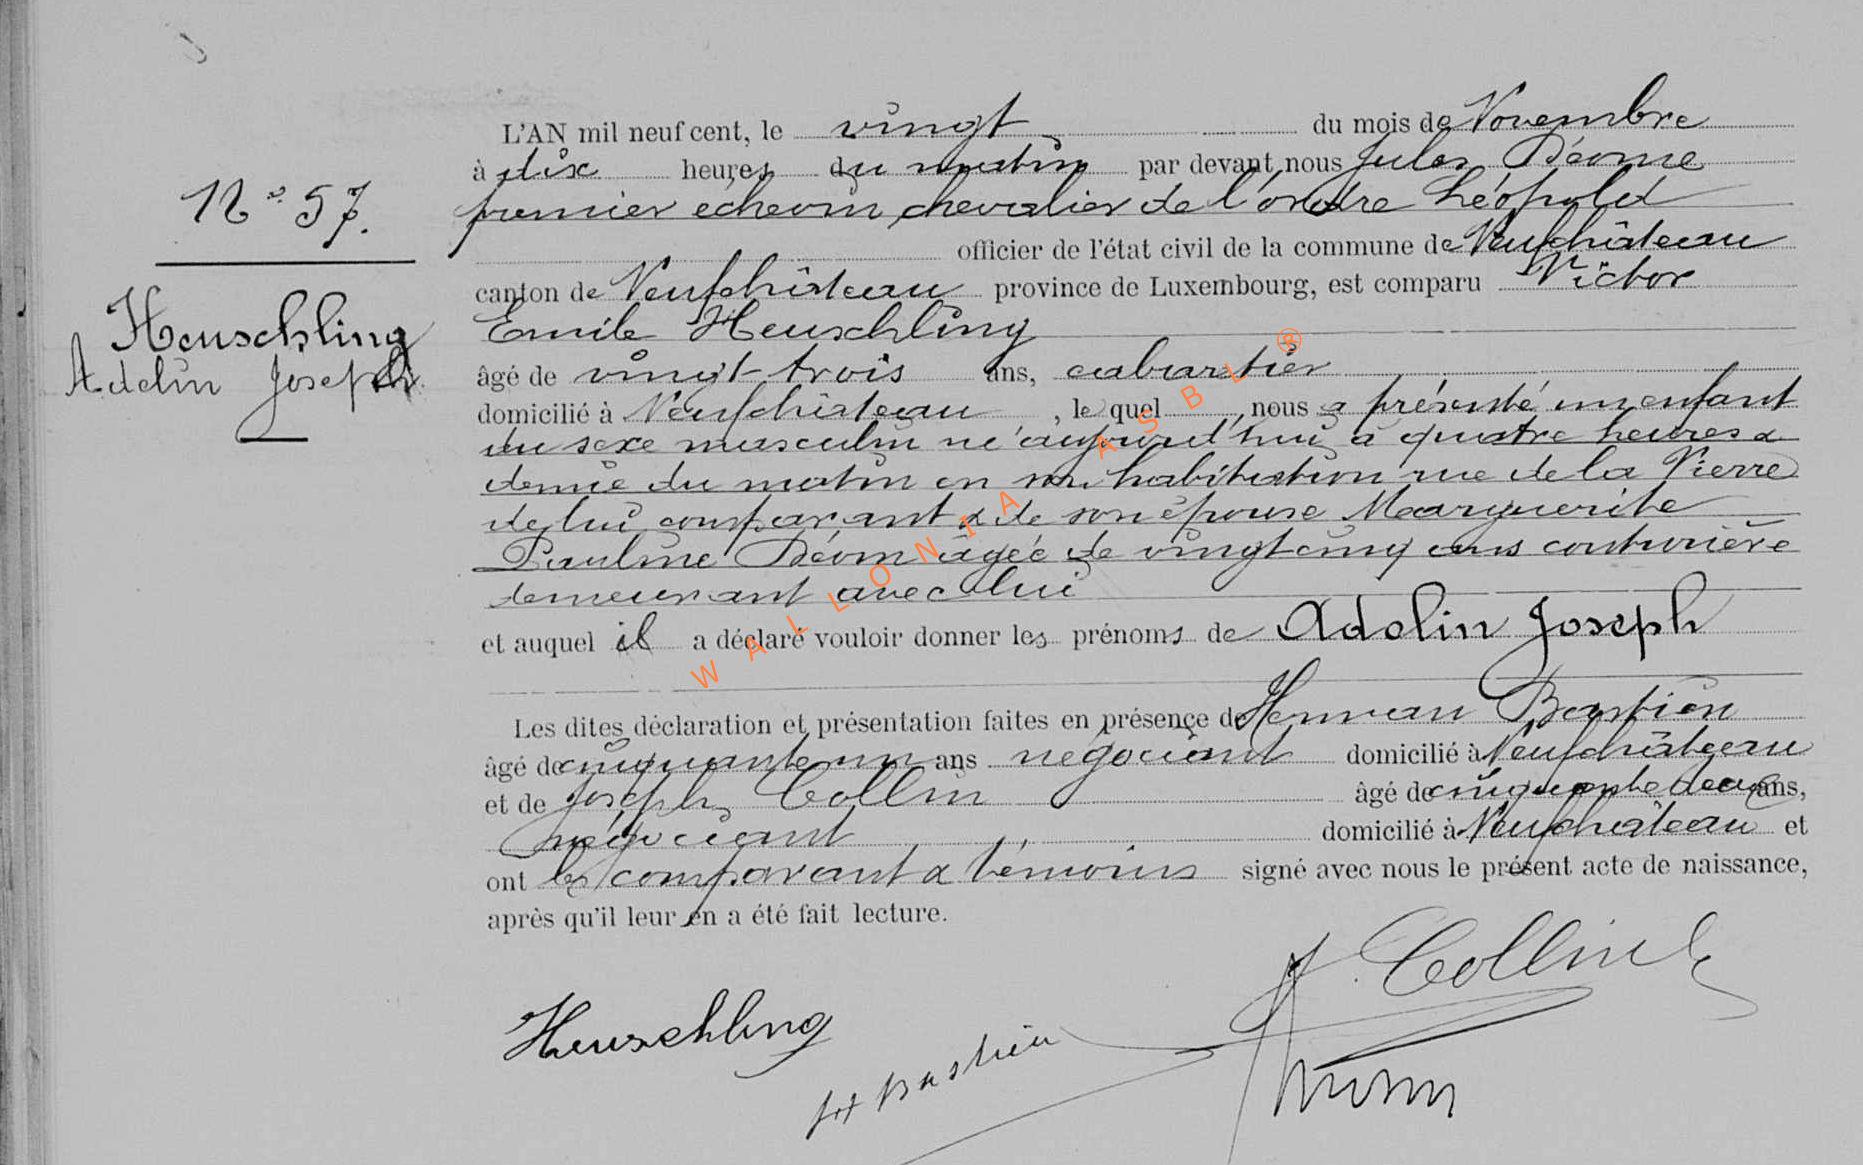 L'AN mil neuf cent, le vingt du mois de Novembre
à dix heures du matin par devant nous Jules Déome
premier echevin, chevalier de l'ordre Léopold
officier de l'état civil de la commune de Neufchâteau
canton de Neufchâteau province de Luxembourg, est comparu Victor
Emile Heuschling
âgé de vingt-trois ans, cabaretier
domicilié à Neufchâteau, le quel nous a présenté un enfant
du sexe masculin né aujourd'hui à quatre heures &
demie du matin en son habitation rue de la Pierre
de lui comparant & de son épouse Marguerite
Pauline Déom âgée de vingt cinq ans couturière
demeurant avec lui
et auquel il a déclaré vouloir donner les prénoms de Adelin Joseph
Les dites déclaration et présentation faites en présence de Herman Bastien
âgé de cinquante un ans négociant domicilié à Neufchâteau
et de Joseph Collin âgé de cinquante deux ans,
négociant domicilié à Neufchâteau et
ont les comparant & témoins signé avec nous le présent acte de naissance,
après qu'il leur en a été fait lecture.
N° 57.
Heuschling
Adelin Joseph
Heuschling
Bastien
J. Collin
WALLONIA ASBL ®